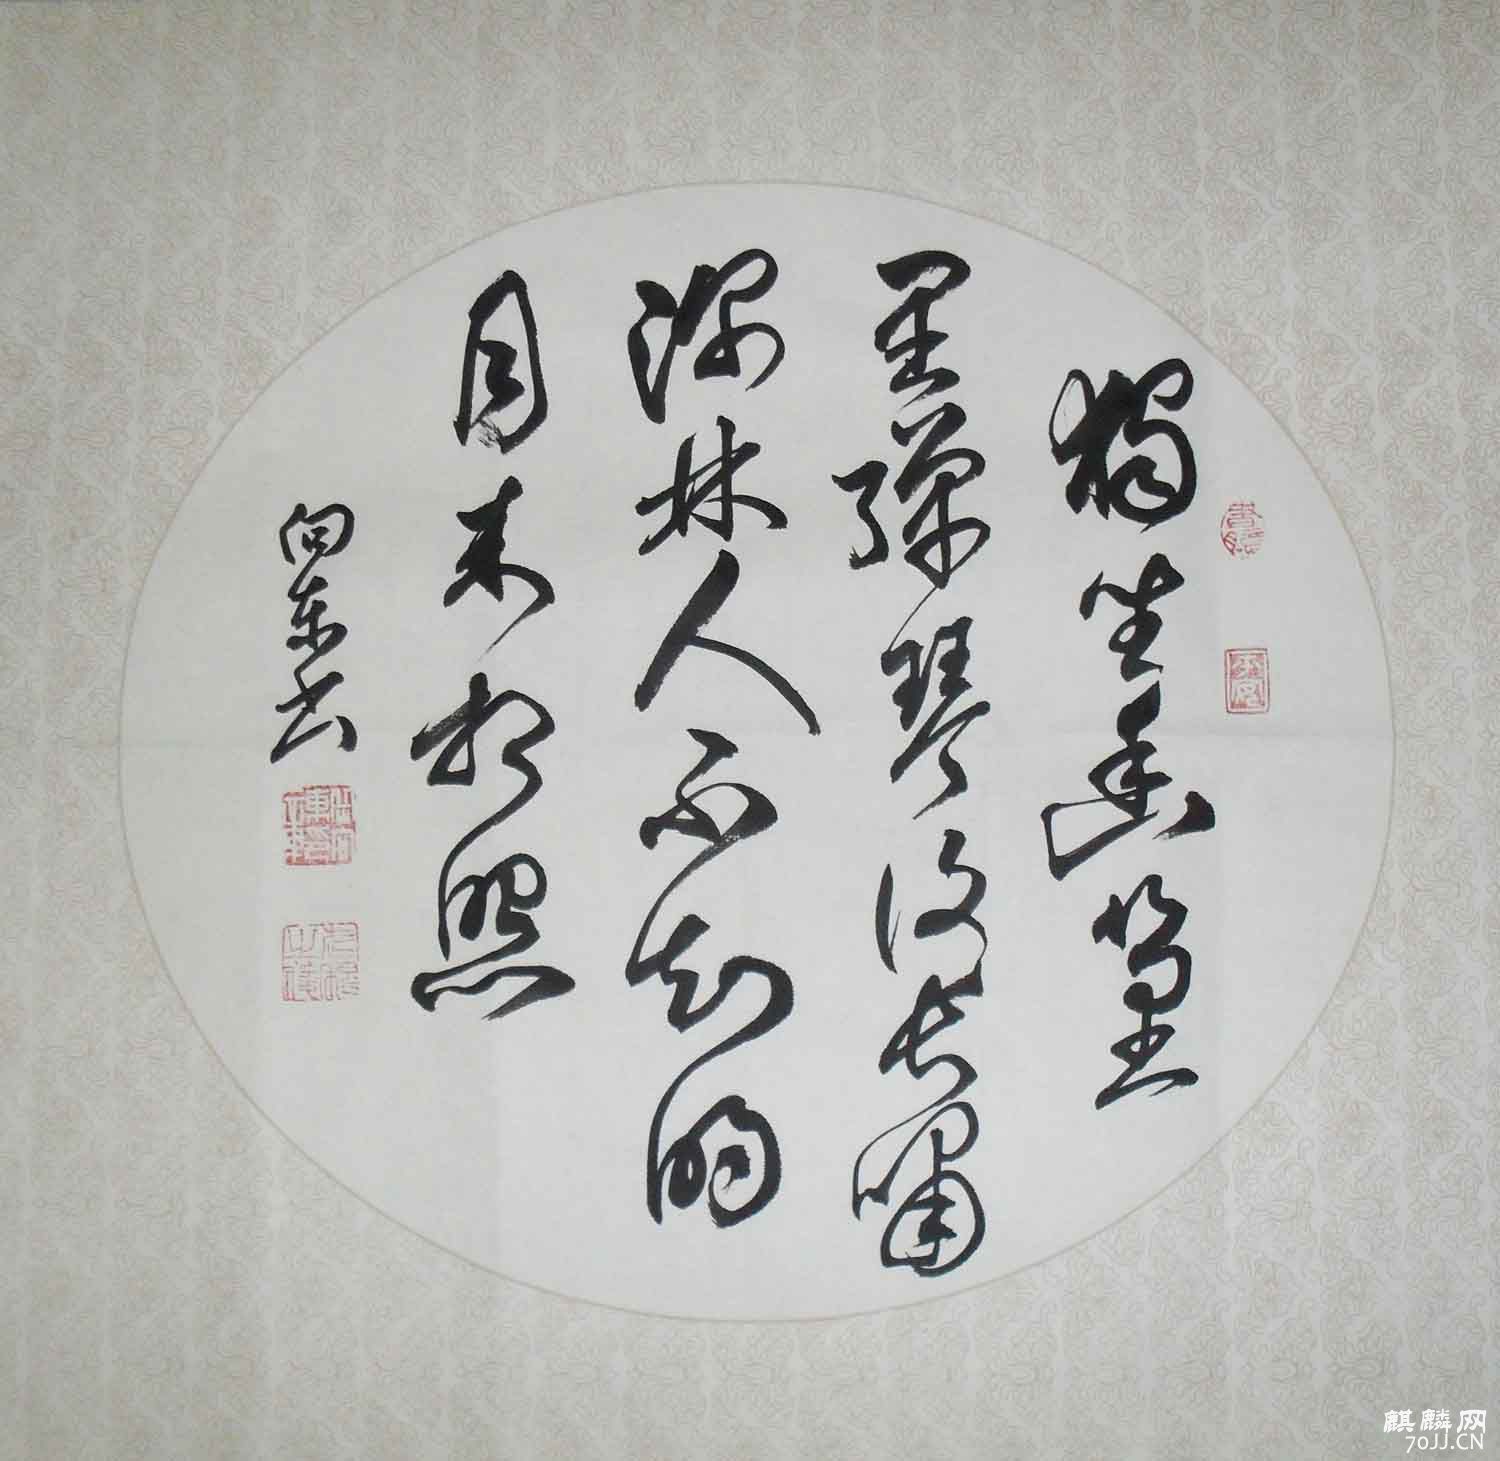 獨坐幽篁
里彈琴復長嘯
深林人不知明
月来相照
向东书
麒麟网
70JJ.CN